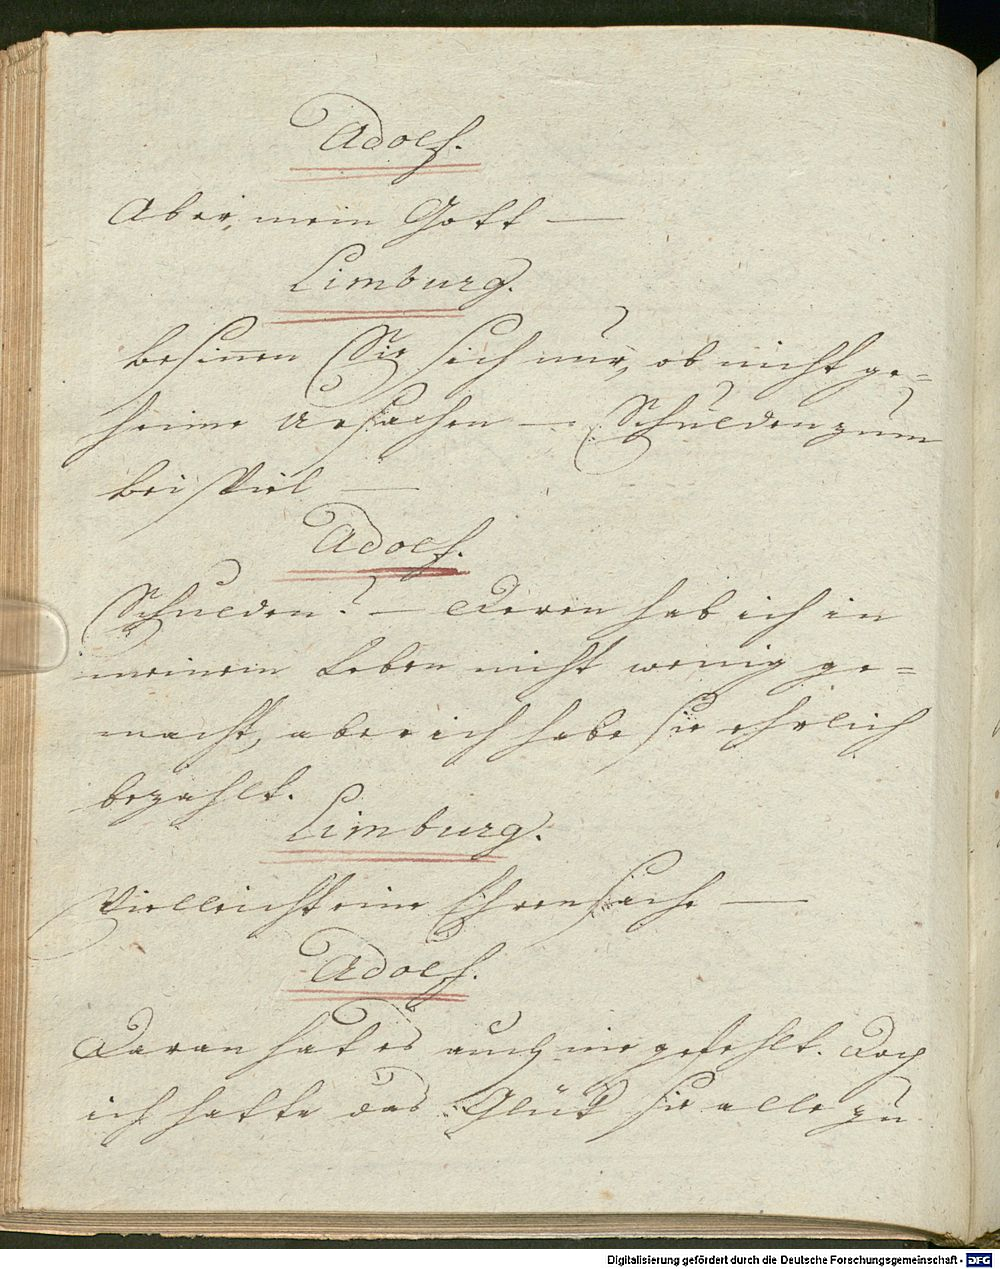 Adolf.
Aber, mein Gott —
Limburg.
besinnen Sie sich nur, ob nicht ge=
heime Ursachen — Schulden zum
beispiel —
Adolf.
Schulden? — Deren hab ich in
meinem Leben nicht wenig ge=
macht, aber ich habe sie ehrlich
bezahlt.
Limburg.
Vielleicht eine Ehrensache —
Adolf.
Daran hat es auch nie gefehlt. Doch
ich hatte das Glück sie alle zu
Digitalisierung gefördert durch die Deutsche Forschungsgemeinschaft - DFG